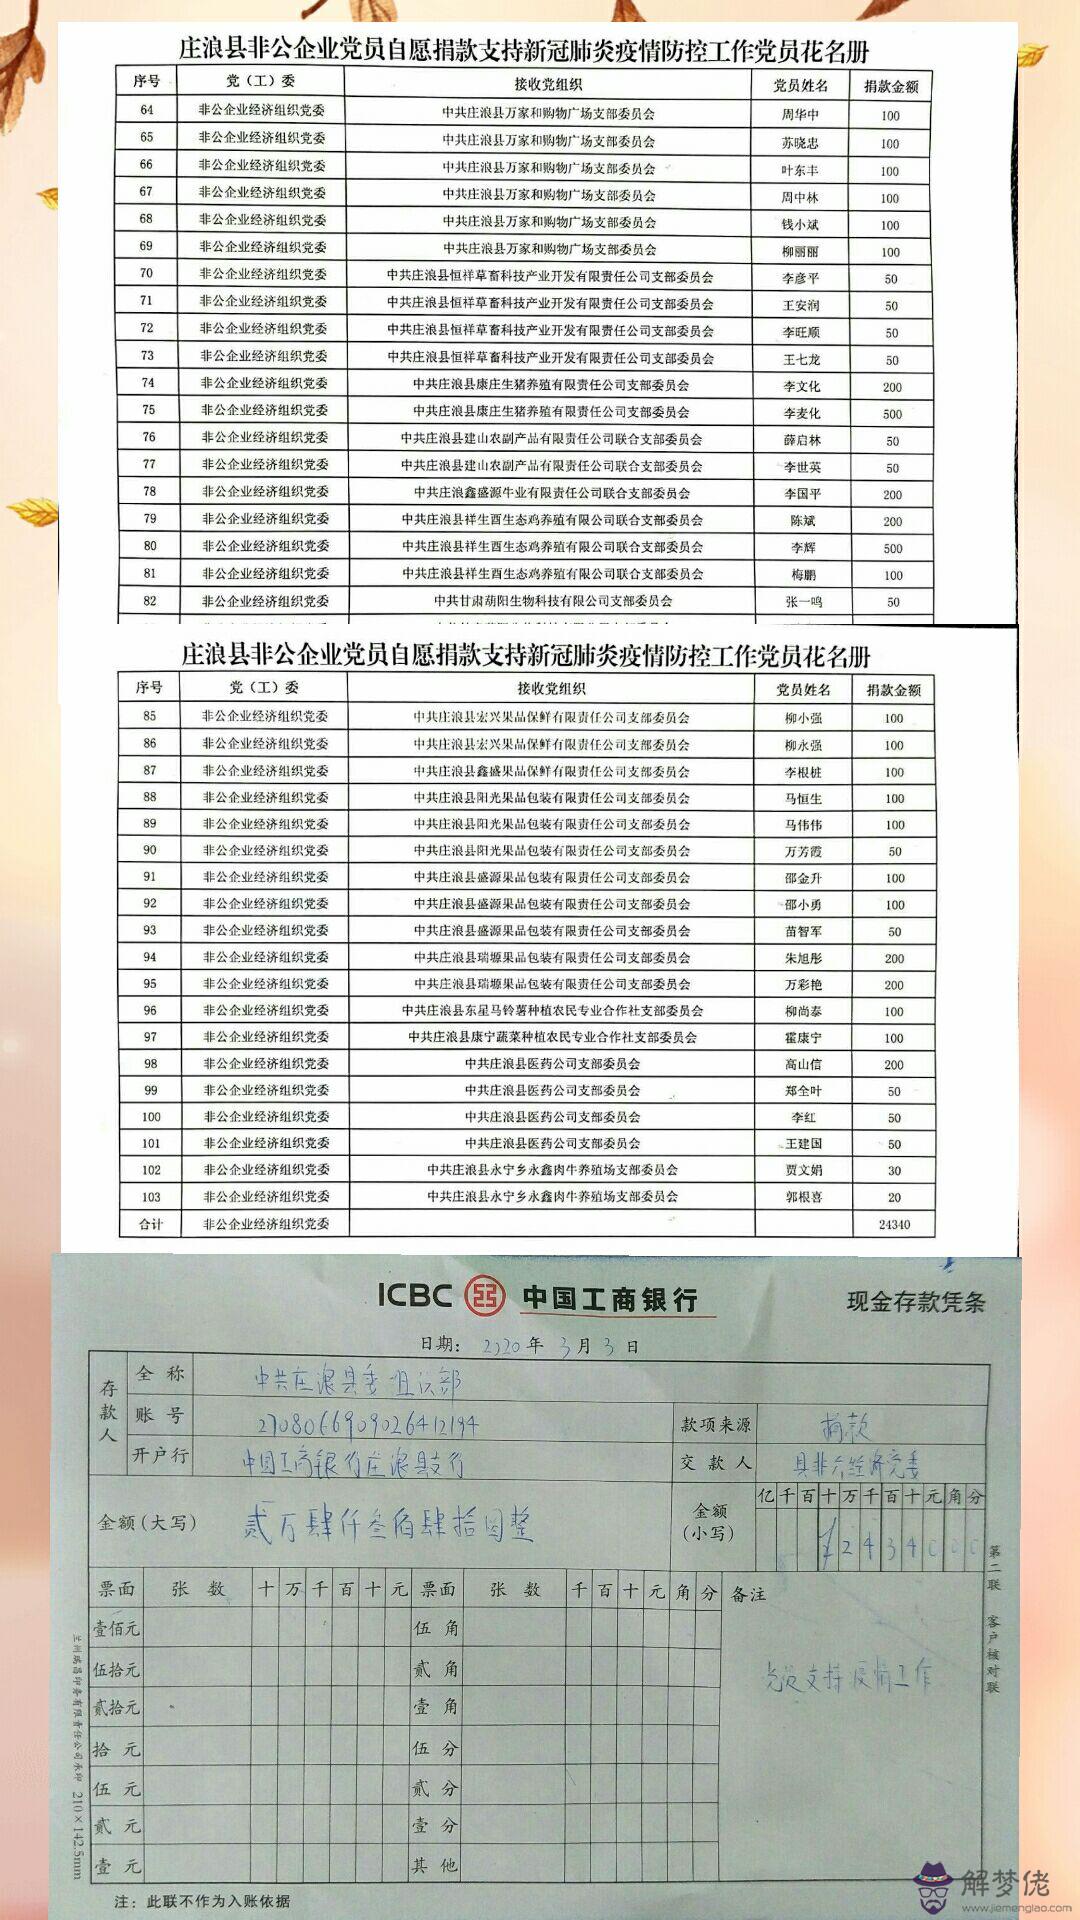 庄浪县非公企业党员自愿捐款支持新冠肺炎疫情防控工作党员花名册
序号 党（工）委 接收党组织 党员姓名 捐款金额
64 非公企业经济组织党委 中共庄浪县万家和购物广场支部委员会 周华中 100
65 非公企业经济组织党委 中共庄浪县万家和购物广场支部委员会 苏晓忠 100
66 非公企业经济组织党委 中共庄浪县万家和购物广场支部委员会 叶东丰 100
67 非公企业经济组织党委 中共庄浪县万家和购物广场支部委员会 周中林 100
68 非公企业经济组织党委 中共庄浪县万家和购物广场支部委员会 钱小斌 100
69 非公企业经济组织党委 中共庄浪县万家和购物广场支部委员会 柳丽丽 100
70 非公企业经济组织党委 中共庄浪县恒祥草畜科技产业开发有限责任公司支部委员会 李彦平 50
71 非公企业经济组织党委 中共庄浪县恒祥草畜科技产业开发有限责任公司支部委员会 王安润 50
72 非公企业经济组织党委 中共庄浪县恒祥草畜科技产业开发有限责任公司支部委员会 李旺顺 50
73 非公企业经济组织党委 中共庄浪县恒祥草畜科技产业开发有限责任公司支部委员会 王七龙 50
74 非公企业经济组织党委 中共庄浪县康庄生猪养殖有限责任公司支部委员会 李文化 200
75 非公企业经济组织党委 中共庄浪县康庄生猪养殖有限责任公司支部委员会 李麦化 500
76 非公企业经济组织党委 中共庄浪县建山农副产品有限责任公司联合支部委员会 薛启林 50
77 非公企业经济组织党委 中共庄浪县建山农副产品有限责任公司联合支部委员会 李世英 50
78 非公企业经济组织党委 中共庄浪鑫盛源牛业有限责任公司联合支部委员会 李国平 200
79 非公企业经济组织党委 中共庄浪县祥生酉生态鸡养殖有限公司联合支部委员会 陈斌 200
80 非公企业经济组织党委 中共庄浪县祥生酉生态鸡养殖有限公司联合支部委员会 李辉 500
81 非公企业经济组织党委 中共庄浪县祥生酉生态鸡养殖有限公司联合支部委员会 梅鹏 100
82 非公企业经济组织党委 中共甘肃葫阳生物科技有限公司支部委员会 张一鸣 50
庄浪县非公企业党员自愿捐款支持新冠肺炎疫情防控工作党员花名册
序号 党（工）委 接收党组织 党员姓名 捐款金额
85 非公企业经济组织党委 中共庄浪县宏兴果品保鲜有限责任公司支部委员会 柳小强 100
86 非公企业经济组织党委 中共庄浪县宏兴果品保鲜有限责任公司支部委员会 柳永强 100
87 非公企业经济组织党委 中共庄浪县鑫盛果品保鲜有限责任公司支部委员会 李根桩 100
88 非公企业经济组织党委 中共庄浪县阳光果品包装有限责任公司支部委员会 马恒生 100
89 非公企业经济组织党委 中共庄浪县阳光果品包装有限责任公司支部委员会 马伟伟 100
90 非公企业经济组织党委 中共庄浪县阳光果品包装有限责任公司支部委员会 万芳霞 50
91 非公企业经济组织党委 中共庄浪县盛源果品包装有限责任公司支部委员会 邵金升 100
92 非公企业经济组织党委 中共庄浪县盛源果品包装有限责任公司支部委员会 邵小勇 100
93 非公企业经济组织党委 中共庄浪县盛源果品包装有限责任公司支部委员会 苗智军 50
94 非公企业经济组织党委 中共庄浪县瑞塬果品包装有限责任公司支部委员会 朱旭彤 200
95 非公企业经济组织党委 中共庄浪县瑞塬果品包装有限责任公司支部委员会 万彩艳 200
96 非公企业经济组织党委 中共庄浪县东星马铃薯种植农民专业合作社支部委员会 柳尚泰 100
97 非公企业经济组织党委 中共庄浪县康宁蔬菜种植农民专业合作社支部委员会 霍康宁 100
98 非公企业经济组织党委 中共庄浪县医药公司支部委员会 高山信 200
99 非公企业经济组织党委 中共庄浪县医药公司支部委员会 郑全叶 50
100 非公企业经济组织党委 中共庄浪县医药公司支部委员会 李红 50
101 非公企业经济组织党委 中共庄浪县医药公司支部委员会 王建国 50
102 非公企业经济组织党委 中共庄浪县永宁乡永鑫肉牛养殖场支部委员会 贾文娟 30
103 非公企业经济组织党委 中共庄浪县永宁乡永鑫肉牛养殖场支部委员会 郭根喜 20
合计 非公企业经济组织党委 24340
ICBC 中国工商银行 现金存款凭条
日期： 2020 年 3 月 3 日
存款人 全称 中共庄浪县委组织部
账号 2708066909026412194 款项来源 捐款
开户行 中国工商银行庄浪县支行 交款人 县非公经济党委
金额(大写) 贰万肆仟叁佰肆拾圆整 金额(小写) 亿 千 百 十 万 千 百 十 元 角 分
¥ 2 4 3 4 0 0 0
票面 张数 十 万 千 百 十 元 票面 张数 千 百 十 元 角 分 备注
壹佰元 伍角
伍拾元 贰角 党员支持疫情工作
贰拾元 壹角
拾元 伍分
伍元 贰分
贰元 壹分
壹元 其他
注：此联不作为入账依据
第二联 客户核对联
兰州瑞昌印务有限责任公司承印 210×142.5mm
解梦佬
www.jiemenglao.com